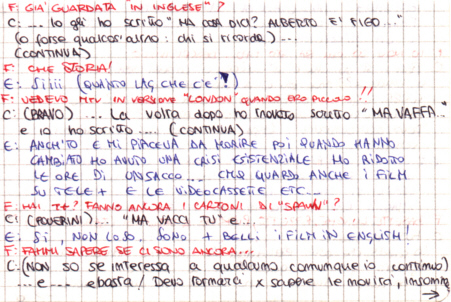 F: GIÀ GUARDATA "IN INGLESE"?
C: .... Io gli ho scritto "MA COSA DICI? ALBERTO E' FIGO..."
(o forse qualcos'altro: chi si ricorda)....
(CONTINUA)
F: CHE STORIA!
E: Siiii (QUANTO LAG CHE C'E'!)
F: VEDEVO MTV IN VERSIONE "LONDON" QUANDO ERO PICCOLO!!
C: (BRAVO).... La volta dopo ho trovato scritto "MA VAFFA..."
e io ho scritto.... (CONTINUA)
E: ANCH'IO E MI PIACEVA DA MORIRE POI QUANDO HANNO
CAMBIATO HO AVUTO UNA CRISI ESISTENZIALE HO RIDOTTO
LE ORE DI UNSACCO... CMQ GUARDO ANCHE I FILM
SU TELE+ E LE VIDEOCASSETTE ETC...
F: HAI T+? FANNO ANCORA I CARTONI DI "SPAWN"?
C: (POVERINI)... "MA VACCI TU" e...
E: Si, NON LO SO. SONO + BELLI I FILM IN ENGLISH!
F: FAMMI SAPERE SE CI SONO ANCORA...
C: (NON so se interessa a qualcuno comunque io continuo)
...e.... e basta! Devo tornarci x sapere le novità, insomma
→